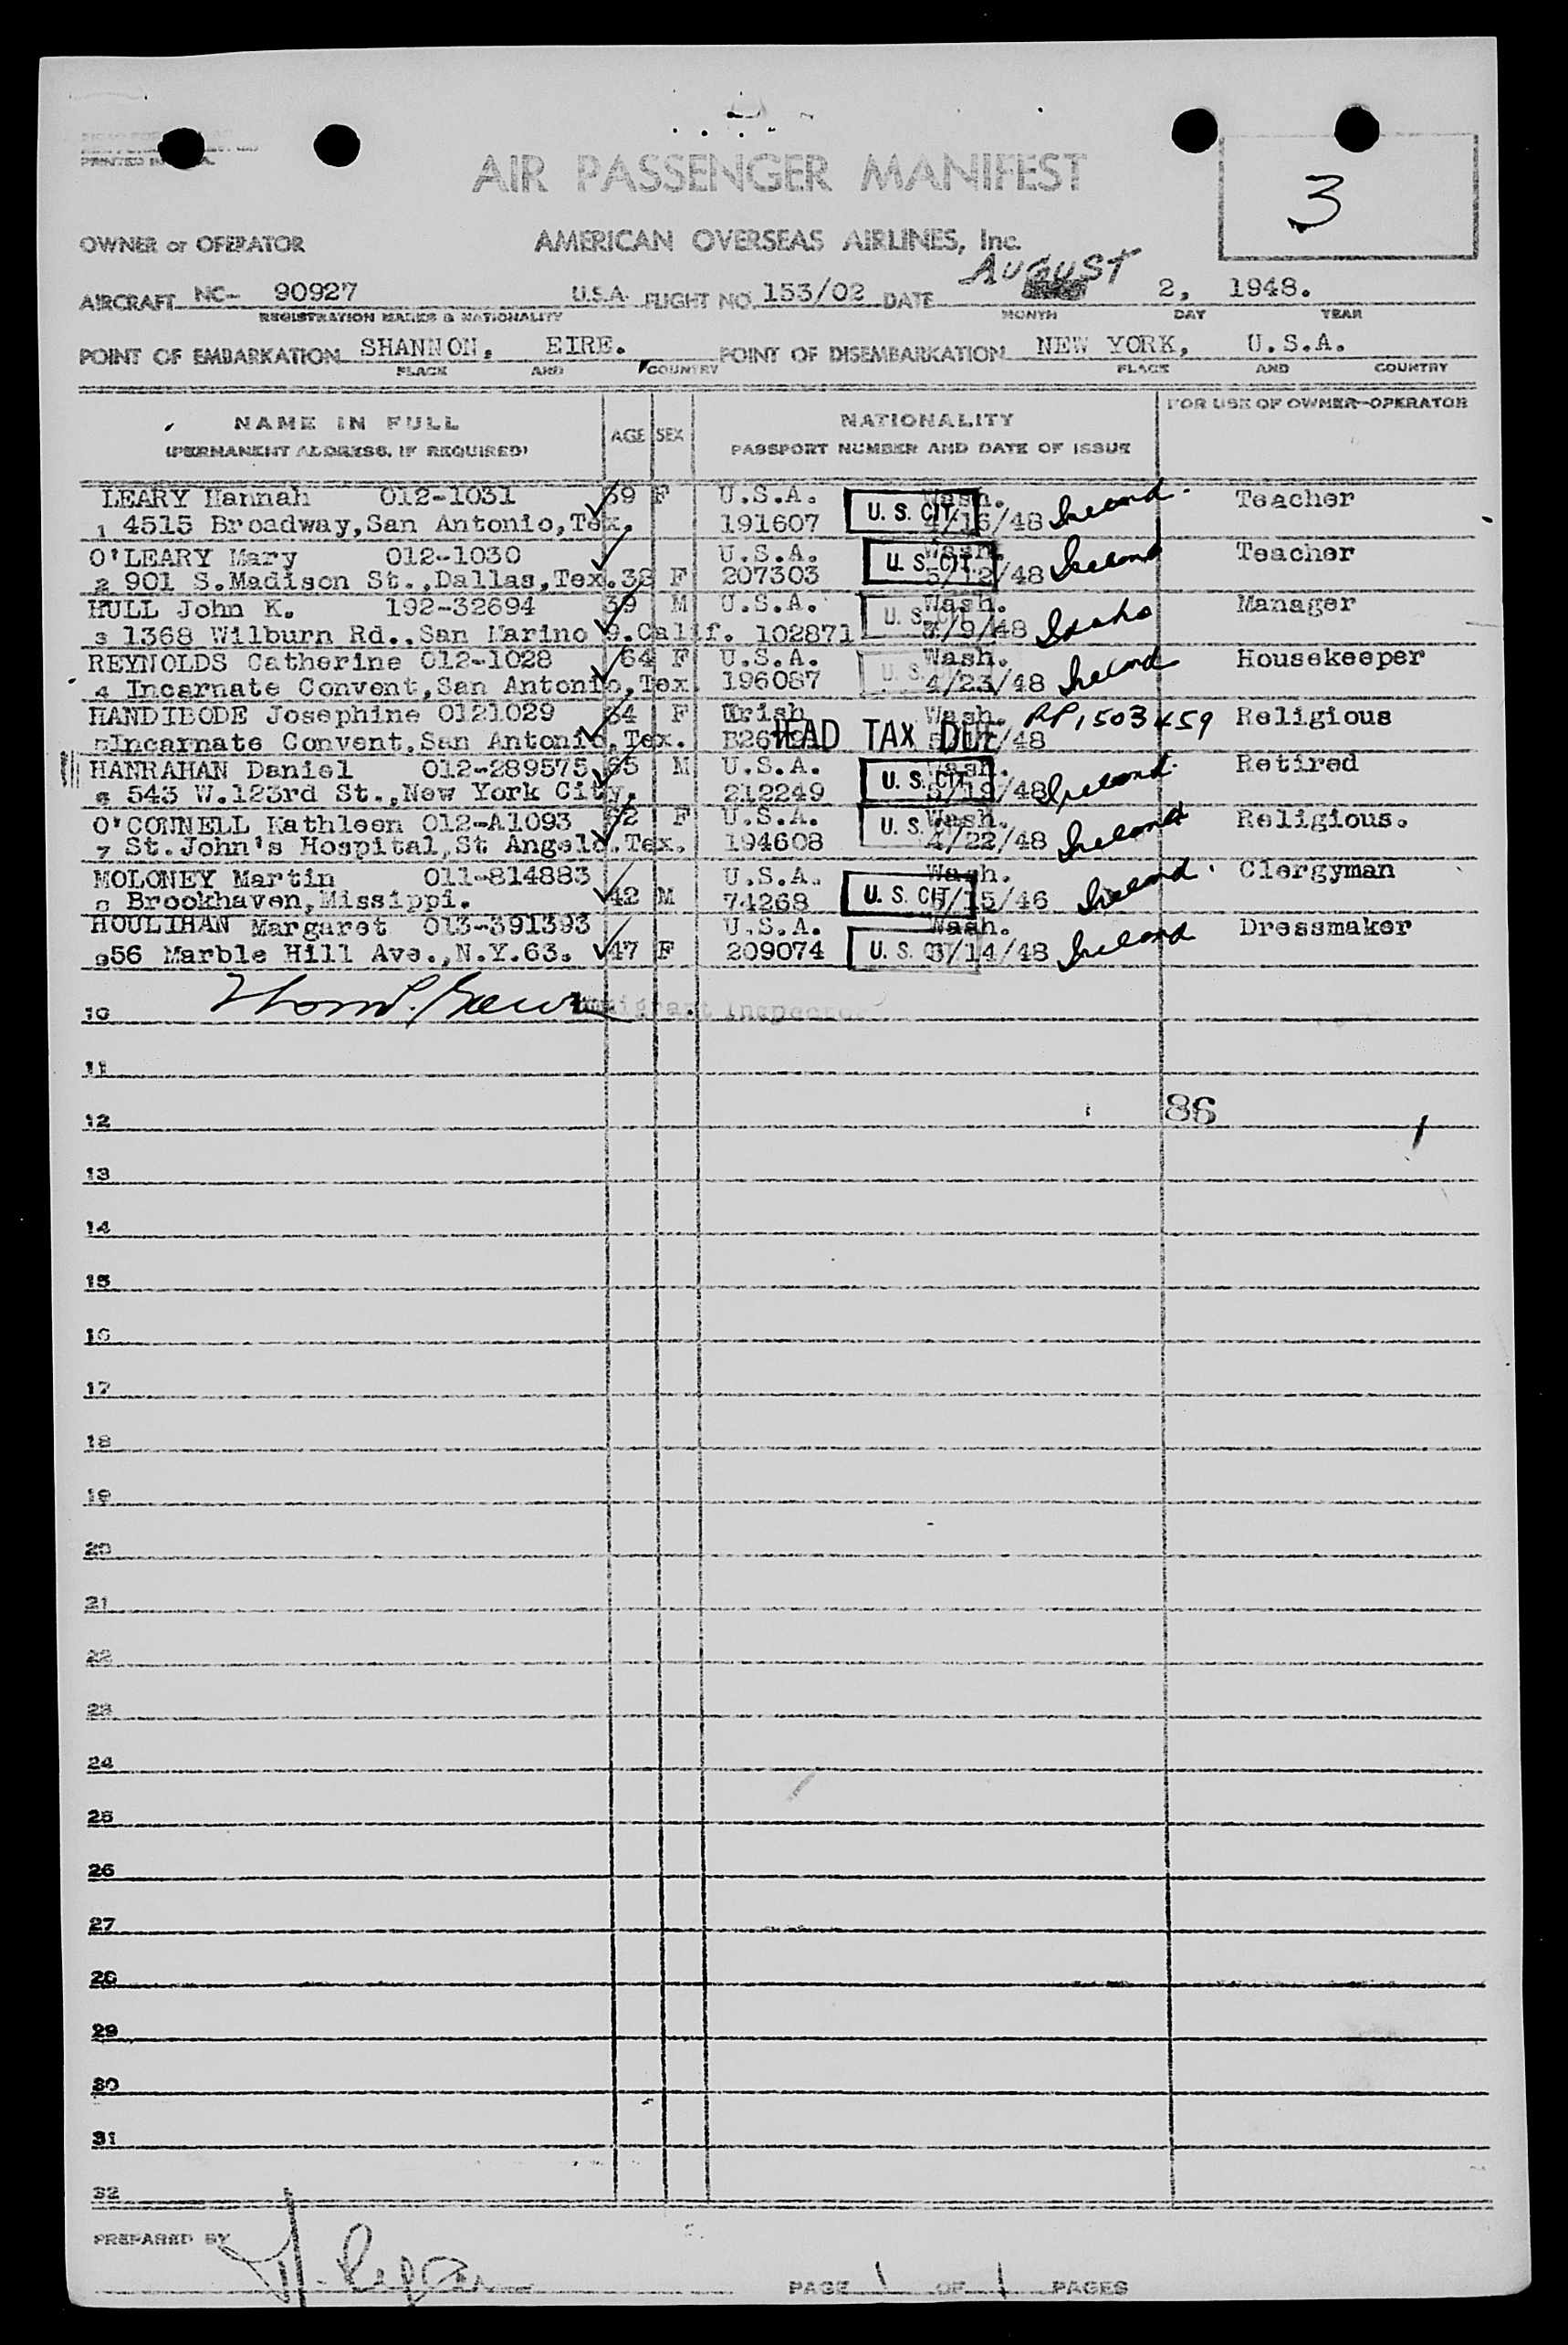 PRINTED IN
AIR PASSENGER MANIFEST
3
OWNER or OPERATOR AMERICAN OVERSEAS AIRLINES, Inc.
AUGUST
AIRCRAFT NC- 90927 U.S.A. FLIGHT NO. 153/02 DATE 2, 1948.
REGISTRATION MARKS & NATIONALITY MONTH DAY YEAR
POINT OF EMBARKATION SHANNON, EIRE. POINT OF DISEMBARKATION NEW YORK, U.S.A.
PLACE AND COUNTRY PLACE AND COUNTRY
NAME IN FULL AGE SEX NATIONALITY FOR USE OF OWNER-OPERATOR
(PERMANENT ADDRESS, IF REQUIRED) PASSPORT NUMBER AND DATE OF ISSUE
LEARY Hannah 012-1031 39 F U.S.A. Wash. Ireland. Teacher
1 4515 Broadway, San Antonio, Tex. 191607 U. S. CIT. 4/16/48
O'LEARY Mary 012-1030 U.S.A. Wash. Ireland Teacher
2 901 S.Madison St., Dallas, Tex. 38 F 207303 U. S. CIT. 5/12/48
HULL John K. 192-32694 39 M U.S.A. Wash. Idaho Manager
3 1368 Wilburn Rd., San Marino 9. Calif. 102871 U. S. /9/48
REYNOLDS Catherine 012-1028 64 F U.S.A. Wash. Ireland Housekeeper
4 Incarnate Convent, San Antonio, Tex. 196087 U. S. 4/23/48
HANDIBODE Josephine 0121029 34 F Irish Wash. RP1503459 Religious
5 Incarnate Convent, San Antonio, Tex. HEAD TAX DUE /48
HANRAHAN Daniel 012-289575 65 M U.S.A. Wash. Ireland. Retired
6 543 W.123rd St., New York City. 212249 U. S. CIT. 5/19/48
O'CONNELL Kathleen 012-A1093 52 F U.S.A. Wash. Ireland Religious.
7 St.John's Hospital, St Angelo. Tex. 194608 U. S. 4/22/48
MOLONEY Martin 011-814883 U.S.A. Wash. Ireland. Clergyman
8 Brookhaven, Missippi. 42 M 74268 U. S. CIT. /15/46
HOULIHAN Margaret 013-391393 U.S.A. Wash. Ireland Dressmaker
9 56 Marble Hill Ave., N.Y.63. 47 F 209074 U. S. /14/48
Immigrant Inspector
10
11
12 86
13
14
15
16
17
18
19
20
21
22
23
24
25
26
27
28
29
30
31
32
PREPARED BY
PAGE 1 OF 1 PAGES